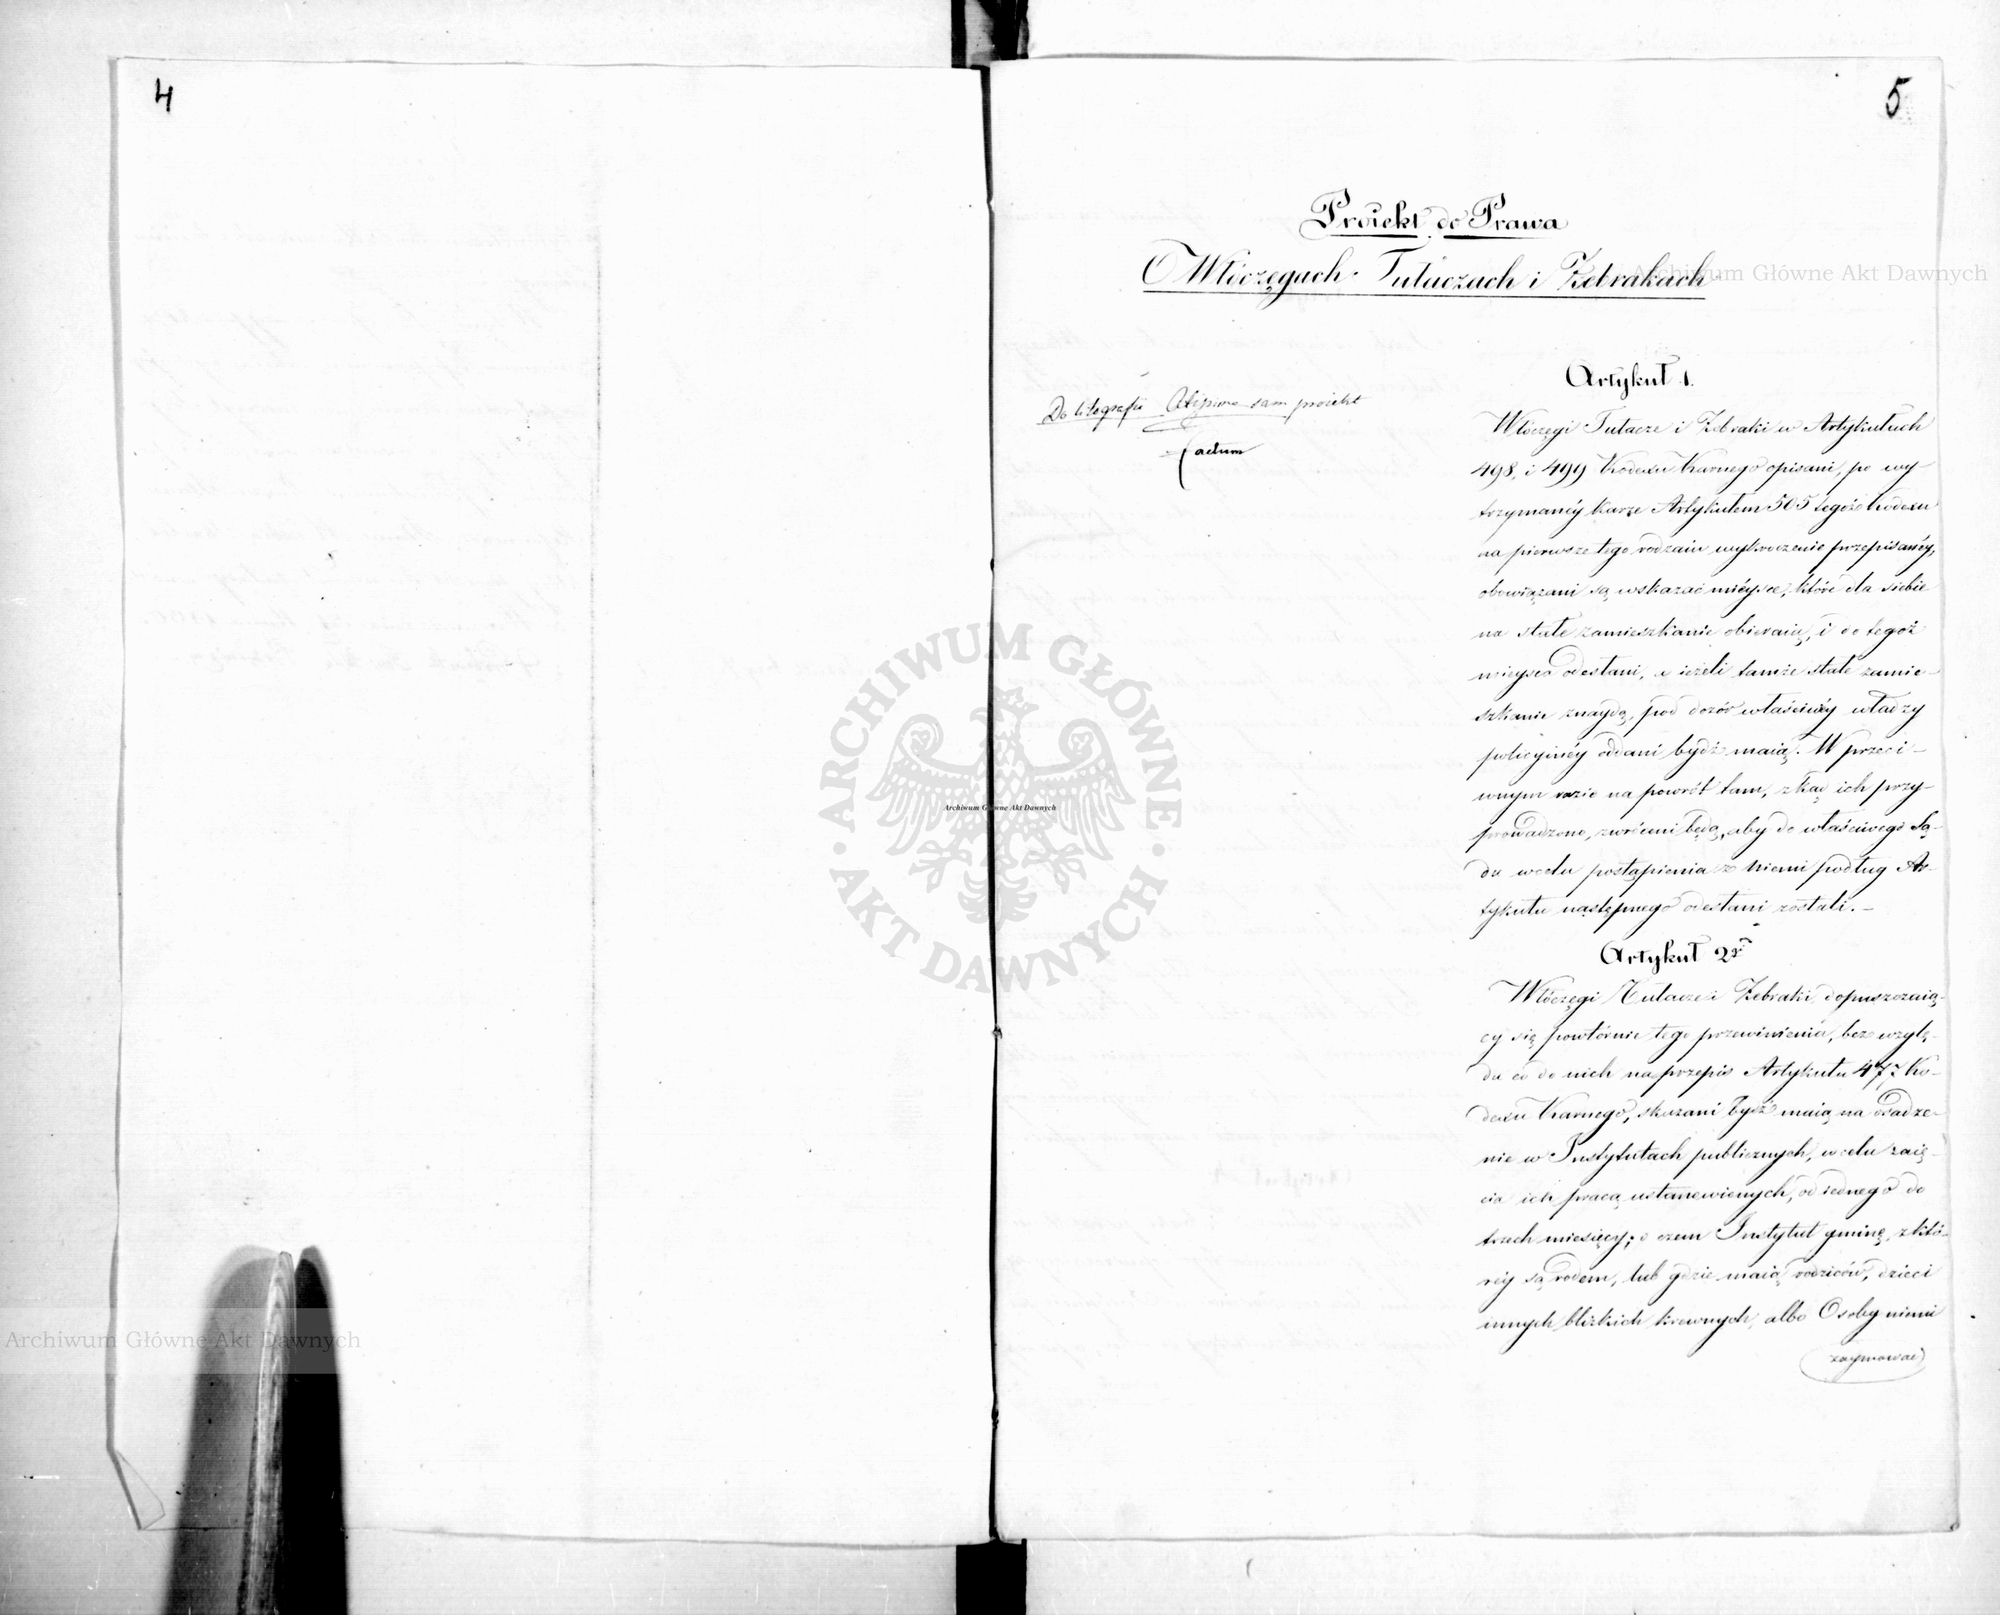 4
5
Proiekt do Prawa
O Włóczęgach Tułaczach i Żebrakach
Do litografii Odpisu sam proiekt
factum
Artykuł 1.
Włóczęgi Tułacze i Żebraki w Artykułach
498, i 499 Kodexu Karnego opisani, po wy-
trzymanéy karze Artykułem 505 tegoż kodexu
na pierwsze tego rodzaiu wykroczenie przepisanéy,
obowiązani są wskazać miéysce, które dla siebie
na stałe zamieszkanie obieraią, i do tegoż
mieysca odesłani, a ieżeli tamże stałe zamie-
szkanie znaydą, pod dozór właściwéy władzy
policyinéy oddani bydź maią. W przeci-
wnym razie na powrót tam, zkąd ich przy-
prowadzono, zwróceni będą, aby do właściwego Są-
du wcelu postąpienia z niemi podług Ar-
tykułu następnego odesłani zostali. —
Artykuł 2gi
Włóczęgi Tułacze i Żebraki, dopuszczaią-
cy się powtórnie tego przewinienia, bez wzglę-
du co do nich na przepis Artykułu 477 Ko-
dexu Karnego, skazani bydź maią na osadze-
nie w Instytutach publicznych, w celu zaię-
cia ich pracą ustanowionych, od iednego do
trzech miesięcy; o czem Instytut gminę, z któ-
réy są rodem, lub gdzie maią rodziców, dzieci
innych blizkich krewnych, albo Osoby niemi
zaymować
Archiwum Główne Akt Dawnych
Archiwum Główne Akt Dawnych
Archiwum Główne Akt Dawnych
ARCHIWUM GŁÓWNE
· AKT DAWNYCH ·